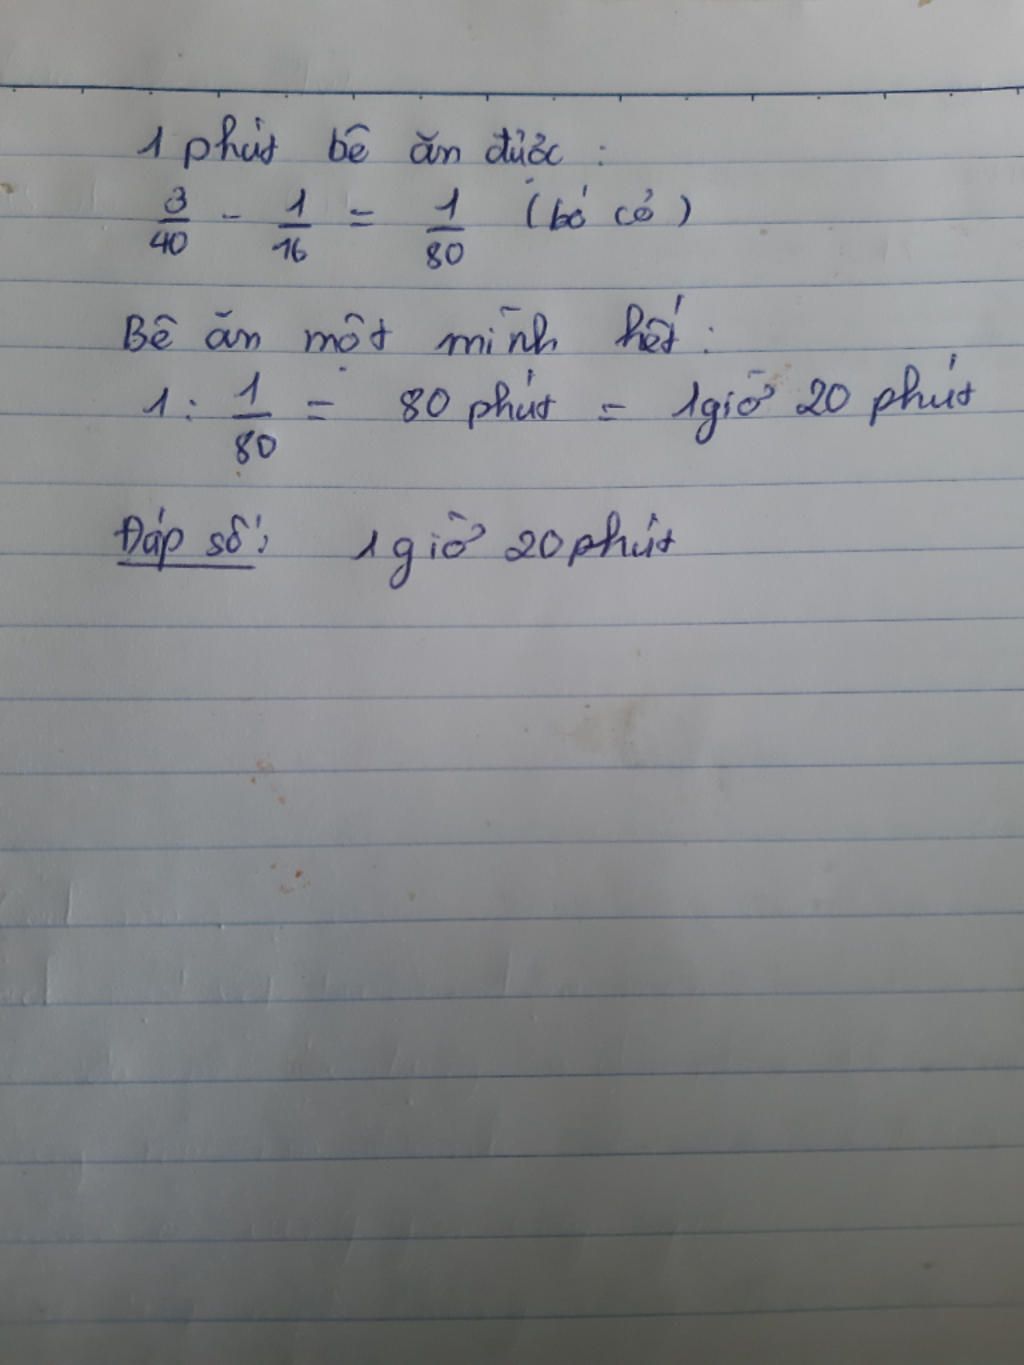 1 phút bê ăn được :
3/40 - 1/16 = 1/80 (bó cỏ)
Bê ăn một mình hết :
1 : 1/80 = 80 phút = 1 giờ 20 phút
Đáp số : 1 giờ 20 phút